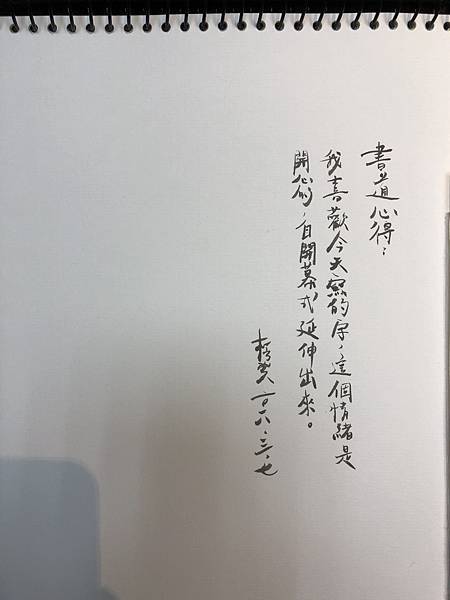 書道心得：
我喜歡今天寫的字，這個情緒是
開心的，自開幕式延伸出來。
八.三.七